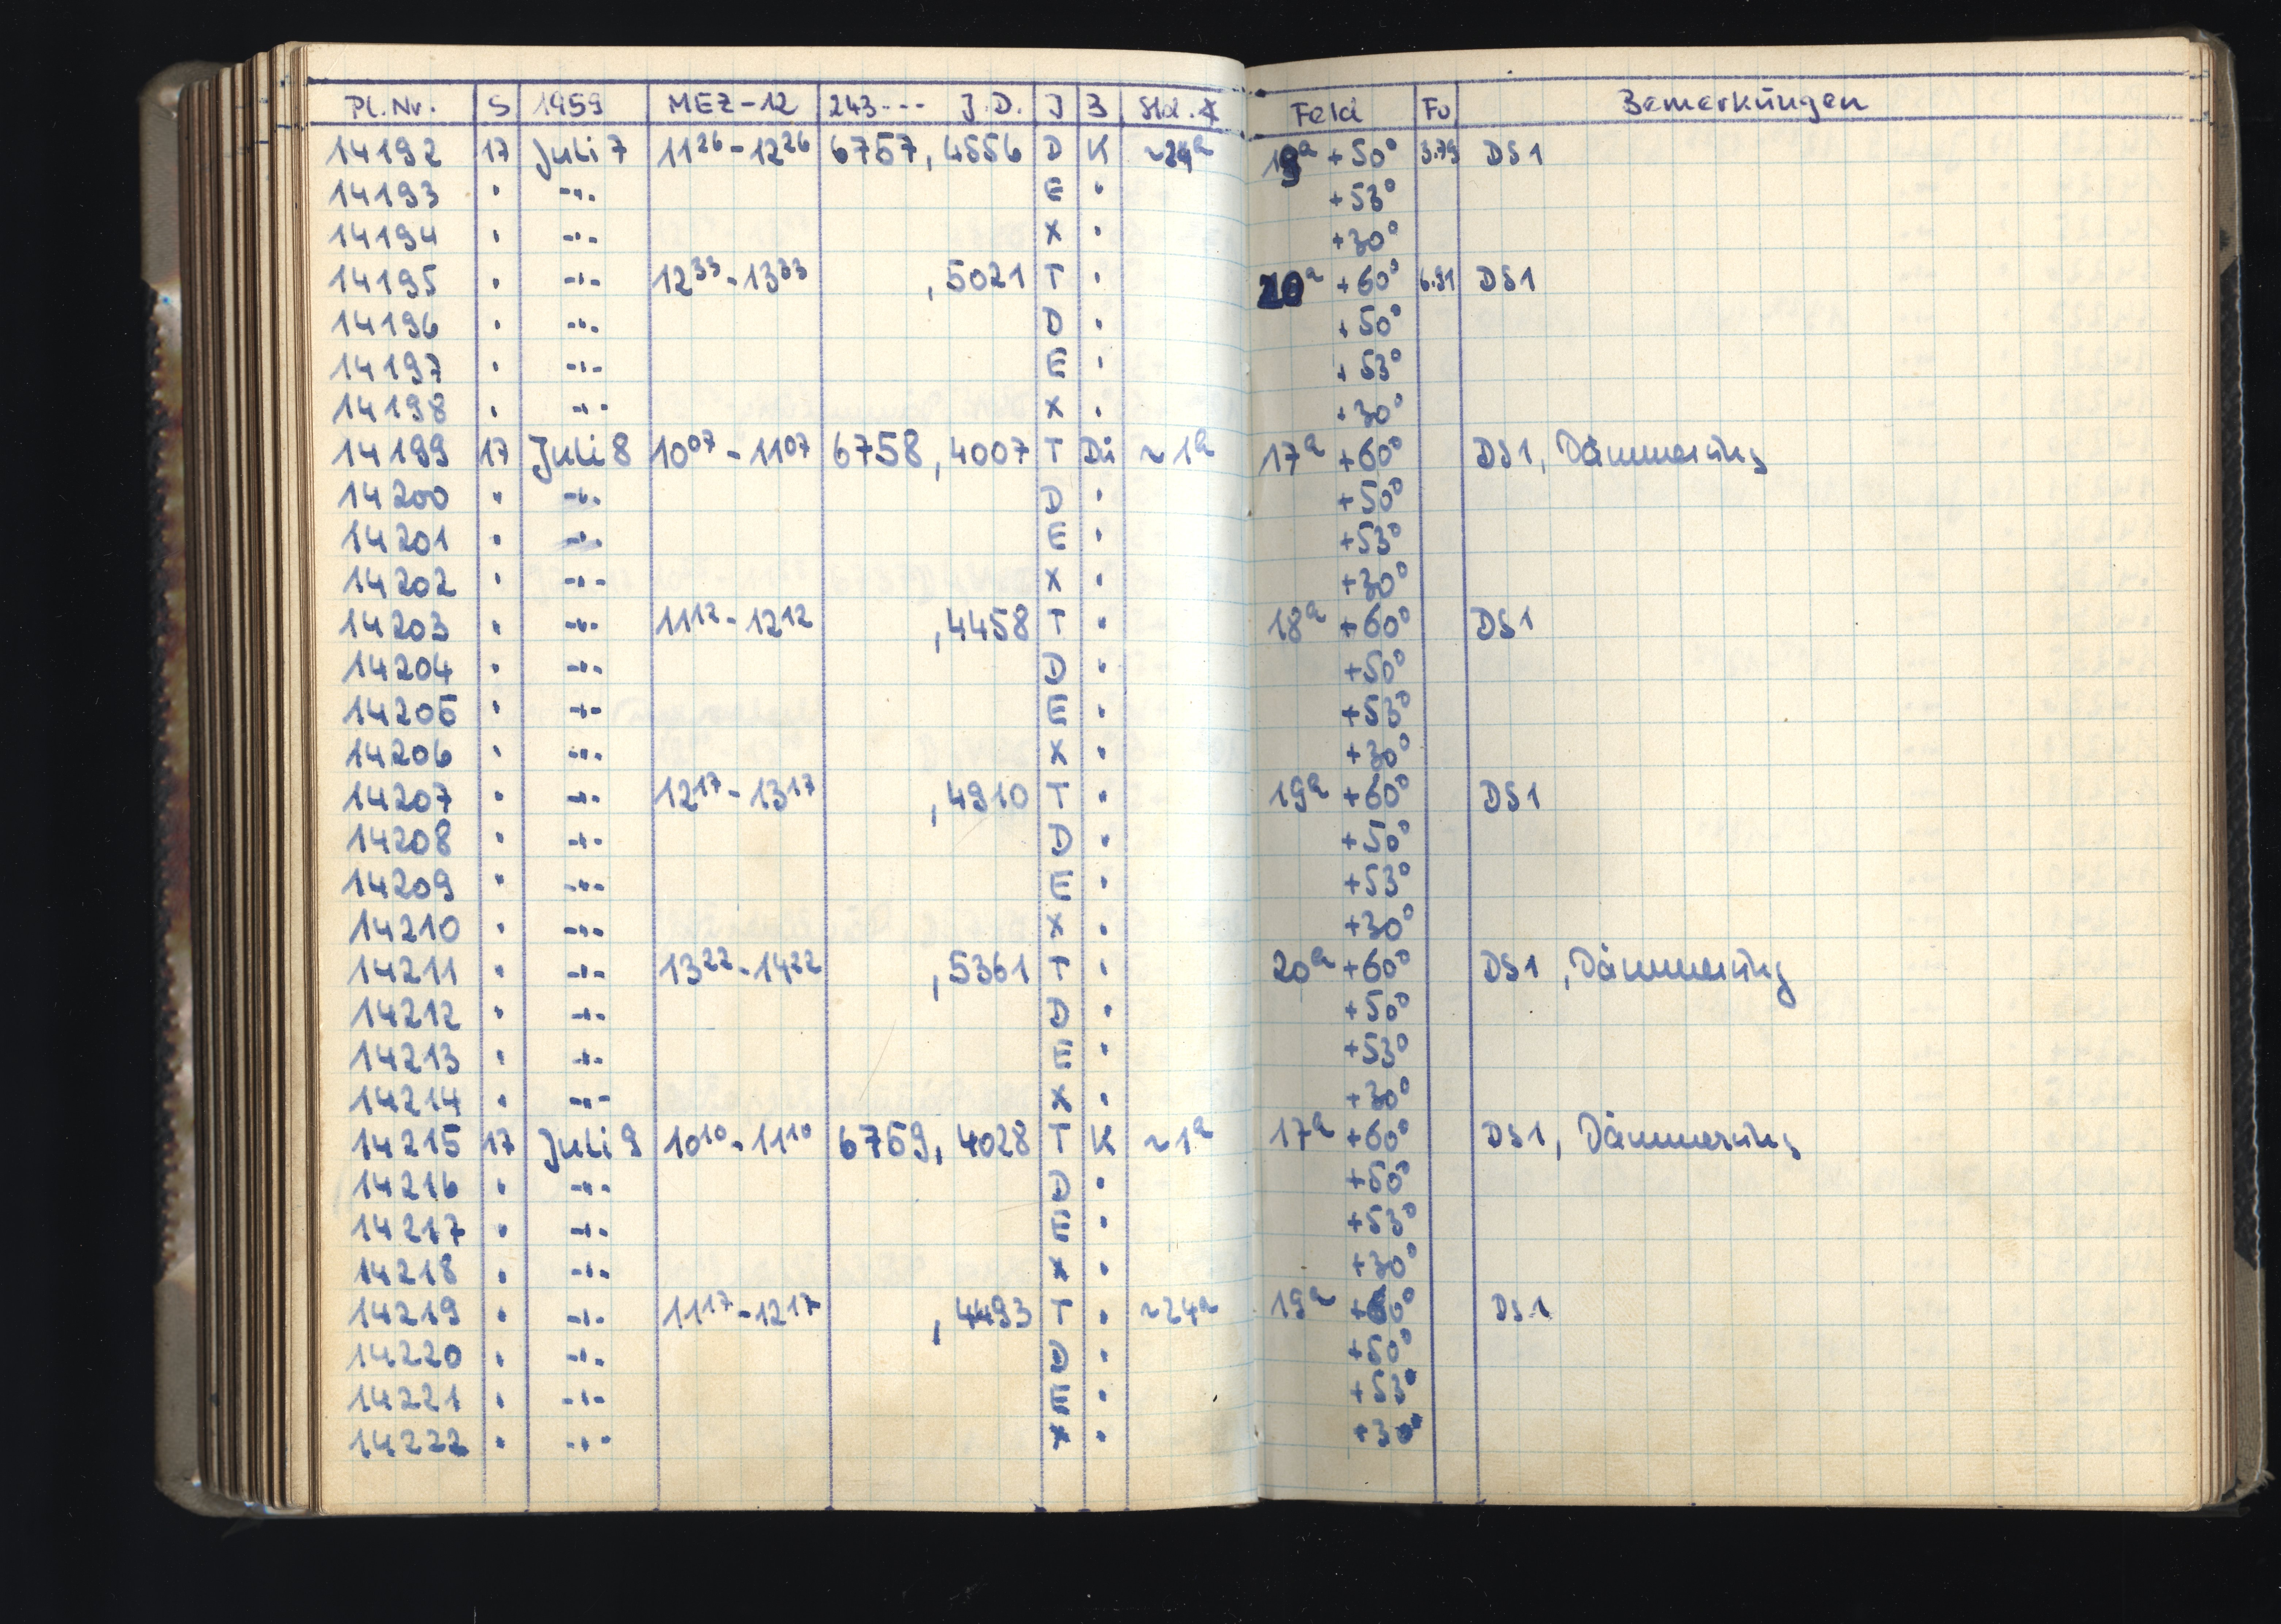 Pl.Nr. S 1959 MEZ-12 243--- J.D. J B Std.∡ Feld Fo Bemerkungen
14192 17 Juli 7 11²⁶-12²⁶ 6757,4556 D K ~24ᵃ 19ᵃ +50° 3.79 DS1
14193 " -"- E " +53°
14194 " -"- X " +30°
14195 " -"- 12³³-13³³ ,5021 T " 20ᵃ +60° 6.91 DS1
14196 " -"- D " +50°
14197 " -"- E " +53°
14198 " -"- X " +30°
14199 17 Juli 8 10⁰⁷-11⁰⁷ 6758,4007 T Dü ~1ᵃ 17ᵃ +60° DS1, Dämmerung
14200 " -"- D " +50°
14201 " -"- E " +53°
14202 " -"- X " +30°
14203 " -"- 11¹²-12¹² ,4458 T " 18ᵃ +60° DS1
14204 " -"- D " +50°
14205 " -"- E " +53°
14206 " -"- X " +30°
14207 " -"- 12¹⁷-13¹⁷ ,4910 T " 19ᵃ +60° DS1
14208 " -"- D " +50°
14209 " -"- E " +53°
14210 " -"- X " +30°
14211 " -"- 13²²-14²² ,5361 T " 20ᵃ +60° DS1, Dämmerung
14212 " -"- D " +50°
14213 " -"- E " +53°
14214 " -"- X " +30°
14215 17 Juli 9 10¹⁰-11¹⁰ 6759,4028 T K ~1ᵃ 17ᵃ +60° DS1, Dämmerung
14216 " -"- D " +50°
14217 " -"- E " +53°
14218 " -"- X " +30°
14219 " -"- 11¹⁷-12¹⁷ ,4493 T " ~24ᵃ 19ᵃ +60° DS1
14220 " -"- D " +50°
14221 " -"- E " +53°
14222 " -"- X " +30°